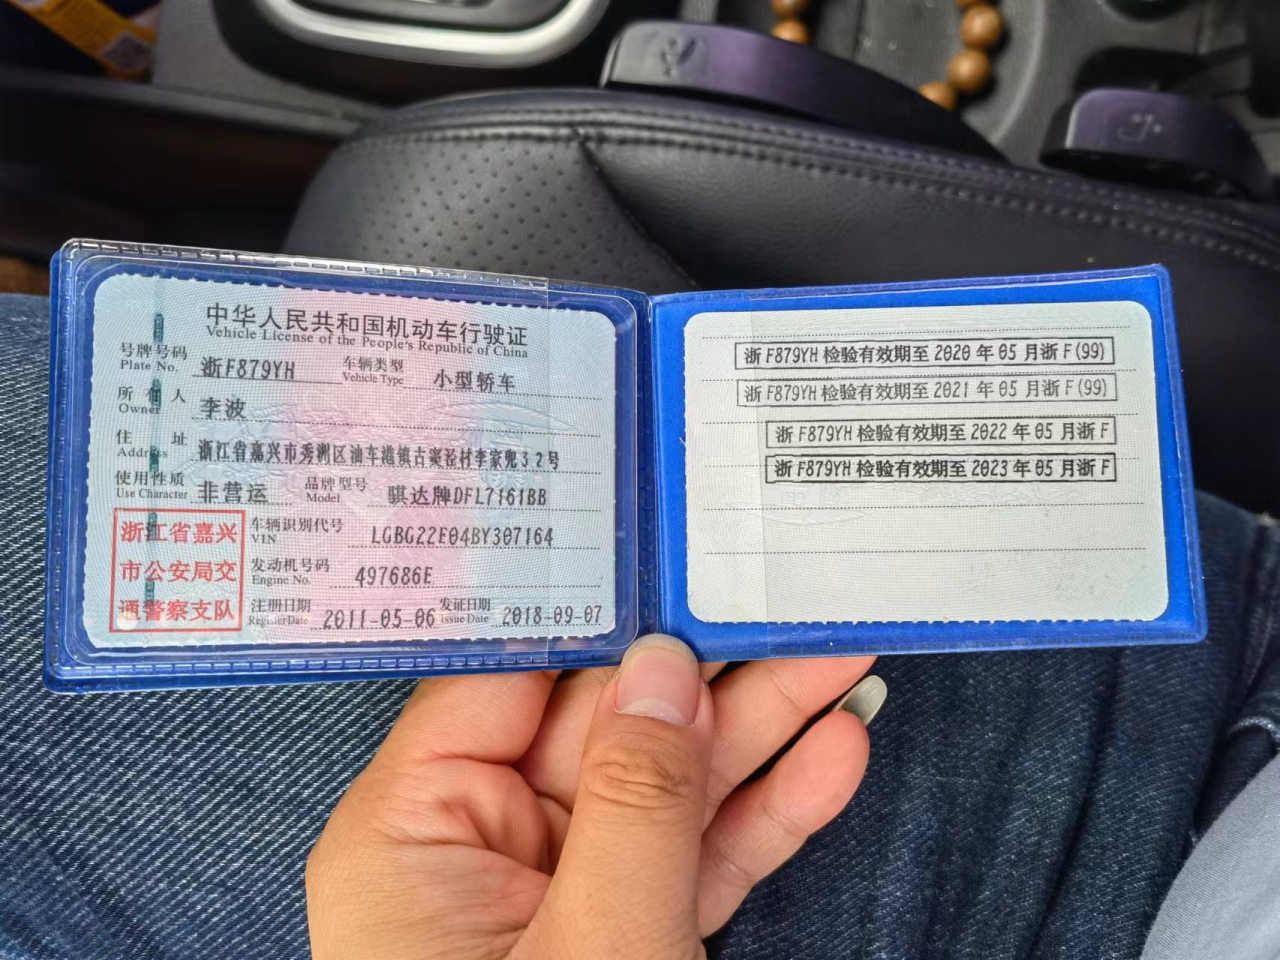 中华人民共和国机动车行驶证
Vehicle License of the People's Republic of China
号牌号码 浙F879YH 车辆类型 小型轿车
Plate No. Vehicle Type
所有人 李波
Owner
住址 浙江省嘉兴市秀洲区油车港镇古窦泾村李家兜32号
Address
使用性质 非营运 品牌型号 骐达牌DFL7161BB
Use Character Model
浙江省嘉兴
市公安局交
通警察支队
车辆识别代号 LGBG22E04BY307164
VIN
发动机号码 497686E
Engine No.
注册日期 2011-05-06 发证日期 2018-09-07
Register Date Issue Date
浙F879YH检验有效期至2020年05月浙F(99)
浙F879YH检验有效期至2021年05月浙F(99)
浙F879YH检验有效期至2022年05月浙F
浙F879YH检验有效期至2023年05月浙F